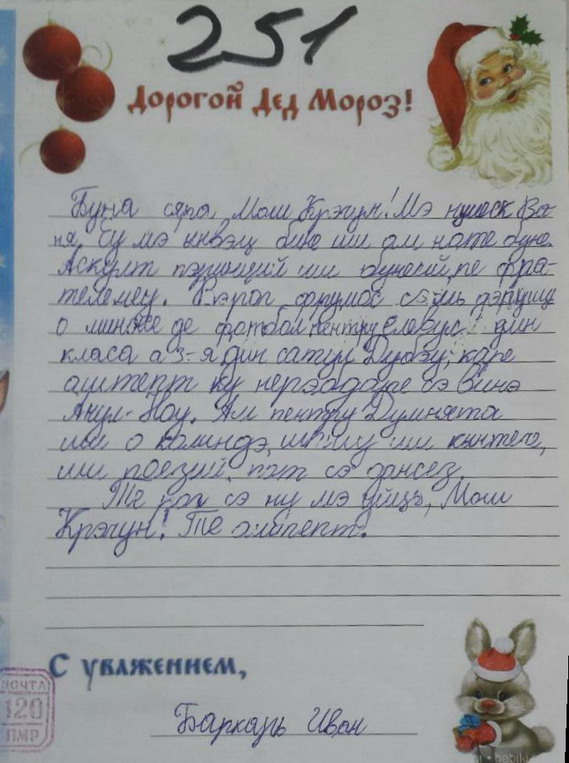 251
Дорогой Дед Мороз!
Буна сяра Мош Крэчун! Мэ нумеск Ва-
ня. Еу мэ ынвэц бине ши ам ноте буне.
Аскулт пэринций ши бунеий, пе фра-
телемеу. Тэ рог фрумос сэ-мь дэруешь
о минӂе де фотбал пентру елевул дин
класа а 3-я дин сатул Дубэу, каре
аштептэ ку нерэбдаре сэ винэ
Анул-Ноу. Ам пентру Думнята
ши о колиндэ, ши ши кынтече,
ши поезий, пот сэ дансез
Те рог сэ ну мэ уйць, Мош
Крэчун! Те аштепт.
С уважением,
Баркарь Иван
ПОЧТА
120
ПМР